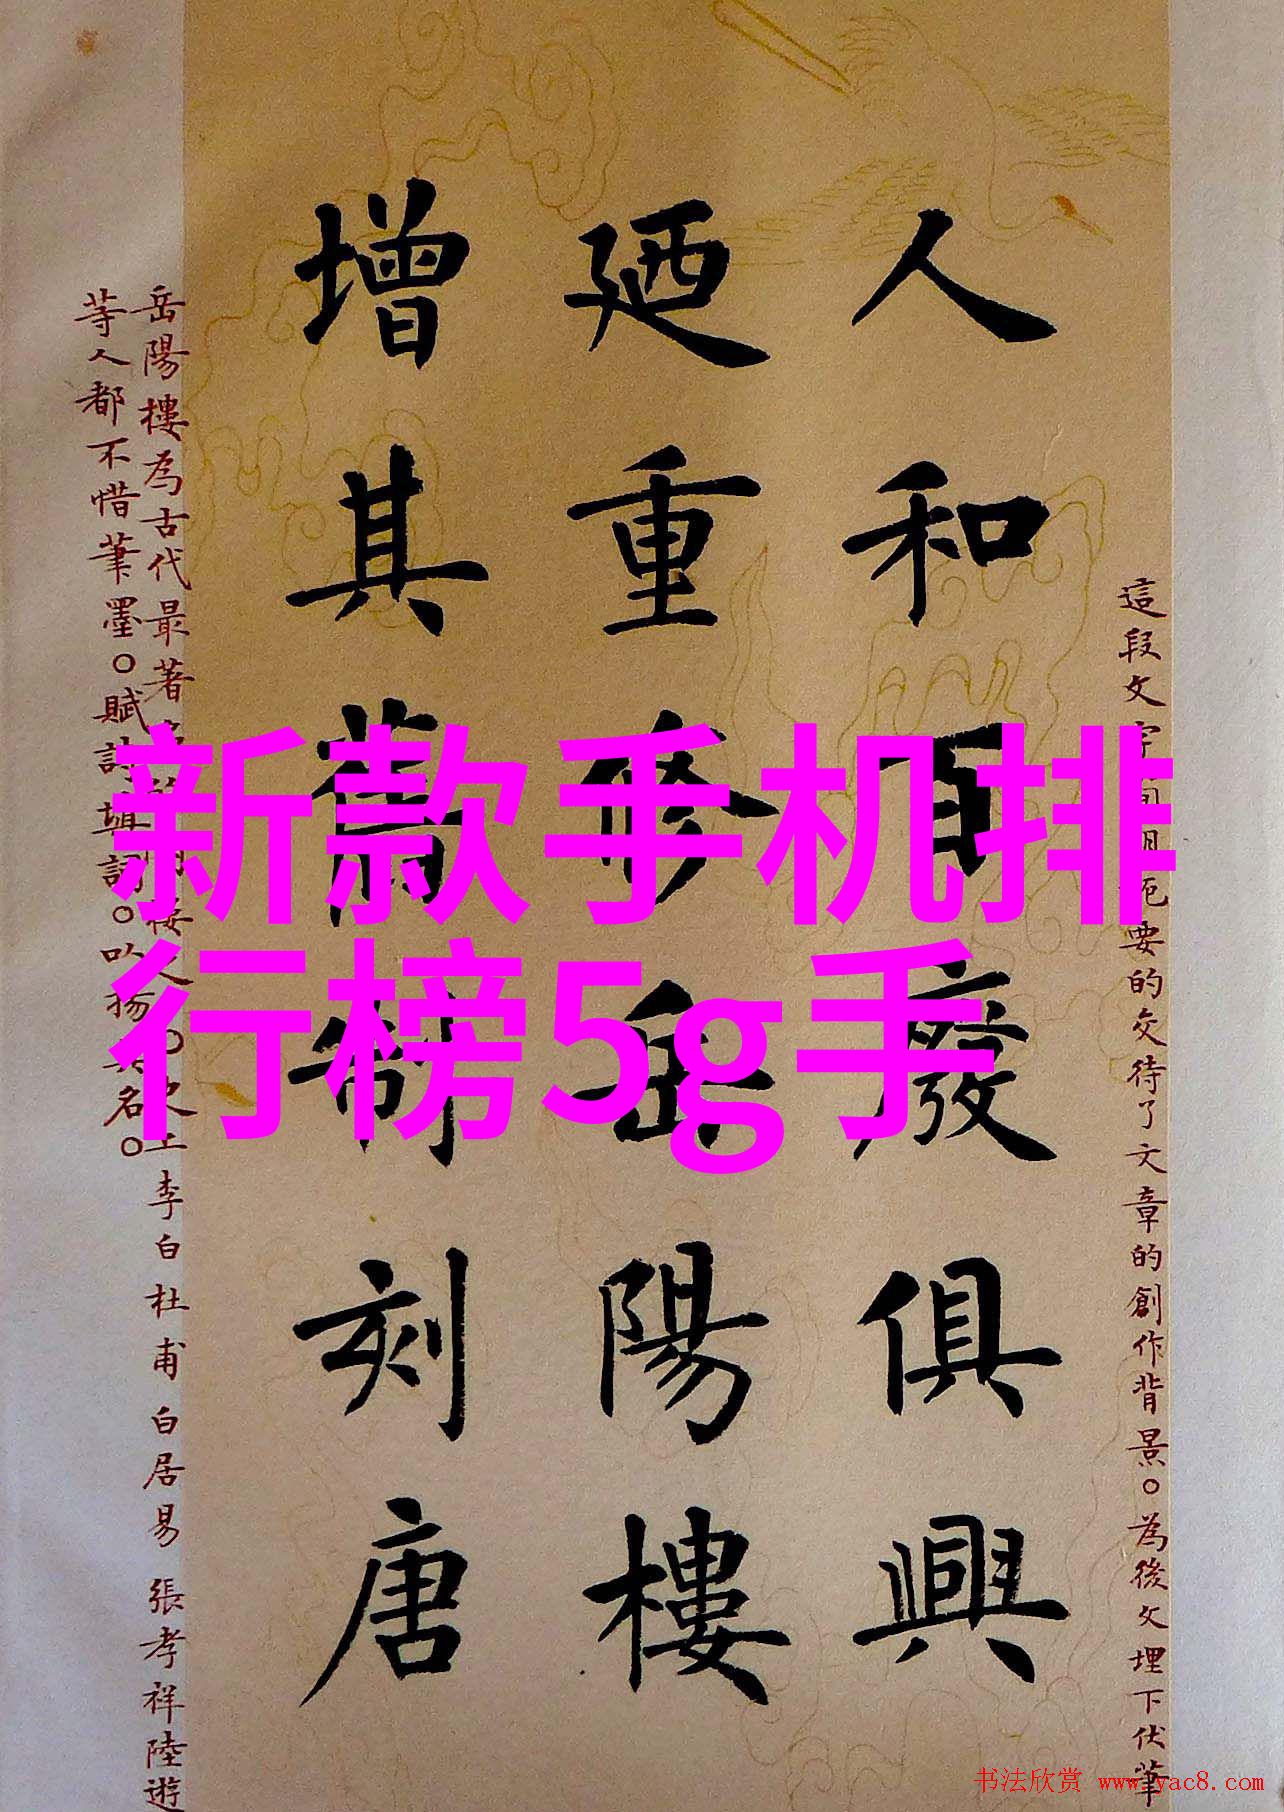 新款手机排
行榜5g手
這段文字
要的交待了文章的創作背景。為後文埋下伏筆
人和百廢俱興
廼重修岳陽樓
增其舊制刻唐
岳陽樓為古代最著
李白杜甫白居易張孝祥陸遊
等人都不惜筆墨。賦詩填詞。以揚其名。
书法欣赏 www.yac8.com